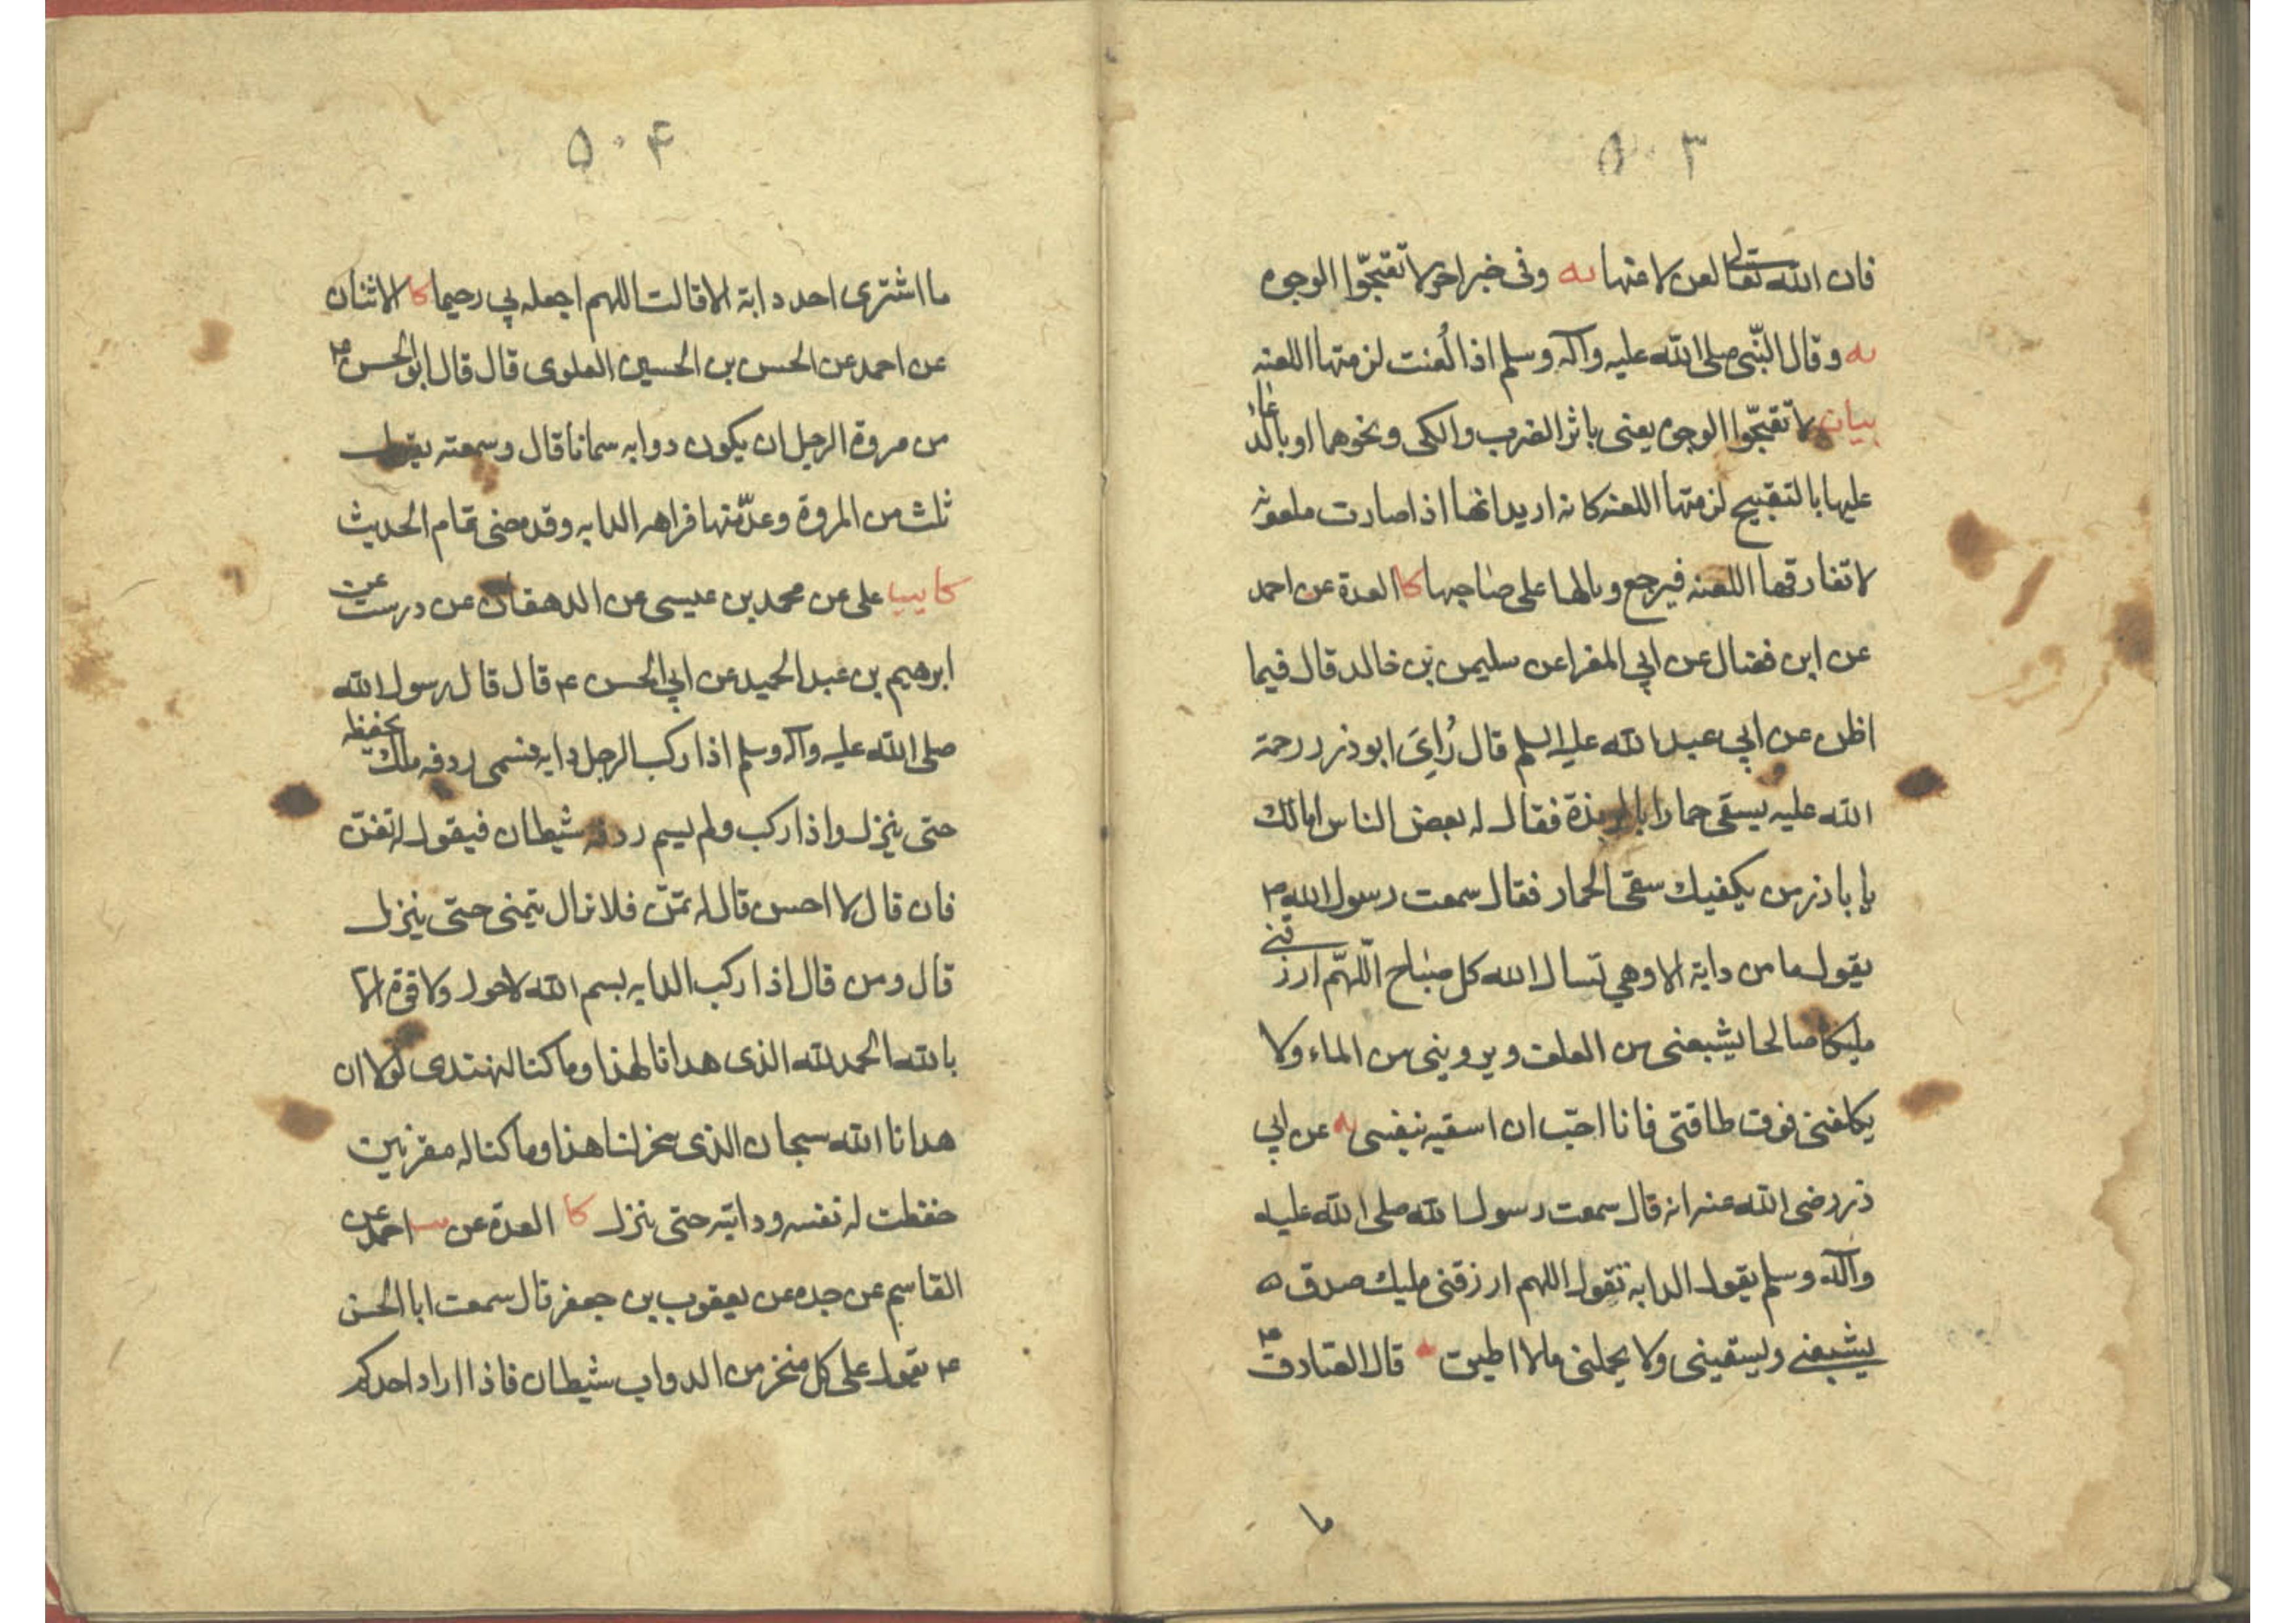 ۵۰۳
فان الله تعالى لعن لاعنها يه وفى خبر اخر لا تقبحّوا الوجوه
يه وقال النّبى صلى الله عليه وآله وسلم اذا لُعنت لزمتها اللعنه
بيان لا تقبحّوا الوجوه يعنى باثر الضرب والكى ونحوهما او بالدعاء
عليها بالتقبيح لزمتها اللعنه كانه اريد انها اذا صارت ملعونه
لا تفارقها اللعنه فيرجع وبالها على صاحبها كا العدة عن احمد
عن ابن فضال عن ابي المغرا عن سليمن بن خالد قال فيما
اظن عن ابي عبد الله عليه السلم قال رُاىَ ابو ذر رحمة
الله عليه يسقى حمارا بالربذة فقال له بعض الناس امالك
يا باذر من يكفيك سقى الحمار فقال سمعت رسول الله ص
يقول ما من دابة الا وهي تسال الله كل صباح اللّهمّ ارزقنى
مليكا صالحا يشبعنى من العلف ويروينى من الماء ولا
يكلفنى فوق طاقتى فانا احبّ ان اسقيه بنفسى يه عن ابي
ذر رضى الله عنه انه قال سمعت رسول الله صلى الله عليه
وآله وسلم يقول الدابه تقول اللهم ارزقنى مليك صدق ه
يشبعنى ويسقينى ولا يحملنى ما لا اطيق يه قال الصّادق ع
ما
۵۰۴
ما اشترى احد دابة الا قالت اللهم اجعله بي رحيما كا الاثنان
عن احمد عن الحسن بن الحسين العلوى قال قال ابو الحسن ع
من مروة الرجل ان يكون دوابه سمانا قال وسمعته يقول
ثلث من المروة وعدّ منها فراهه الدابه وقد مضى تمام الحديث
كا يب على عن محمد بن عيسى عن الدهقان عن درست عن
ابرهيم بن عبد الحميد عن ابي الحسن ع قال قال رسول الله
صلى الله عليه وآله وسلم اذا ركب الرجل دابه فسمى ردفه ملك يحفظه
حتى ينزل واذا ركب ولم يسم ردفه شيطان فيقول له تغنّ
فان قال لا احسن قال له تمنّ فلا نزال يتمنى حتّى ينزل
قال ومن قال اذا ركب الدابه بسم الله لا حول ولا قوة الا
بالله الحمد لله الذى هدانا لهذا وما كنا لنهتدى لولا ان
هدانا الله سبحان الذى سخر لنا هذا وما كنا له مقرنين
حفظت له نفسه ودابته حتى ينزل كا العدة عن احمد عن
القاسم عن جده عن يعقوب بن جعفر قال سمعت ابا الحسن
ع يقول على كل منخر من الدواب شيطان فاذا اراد احدكم